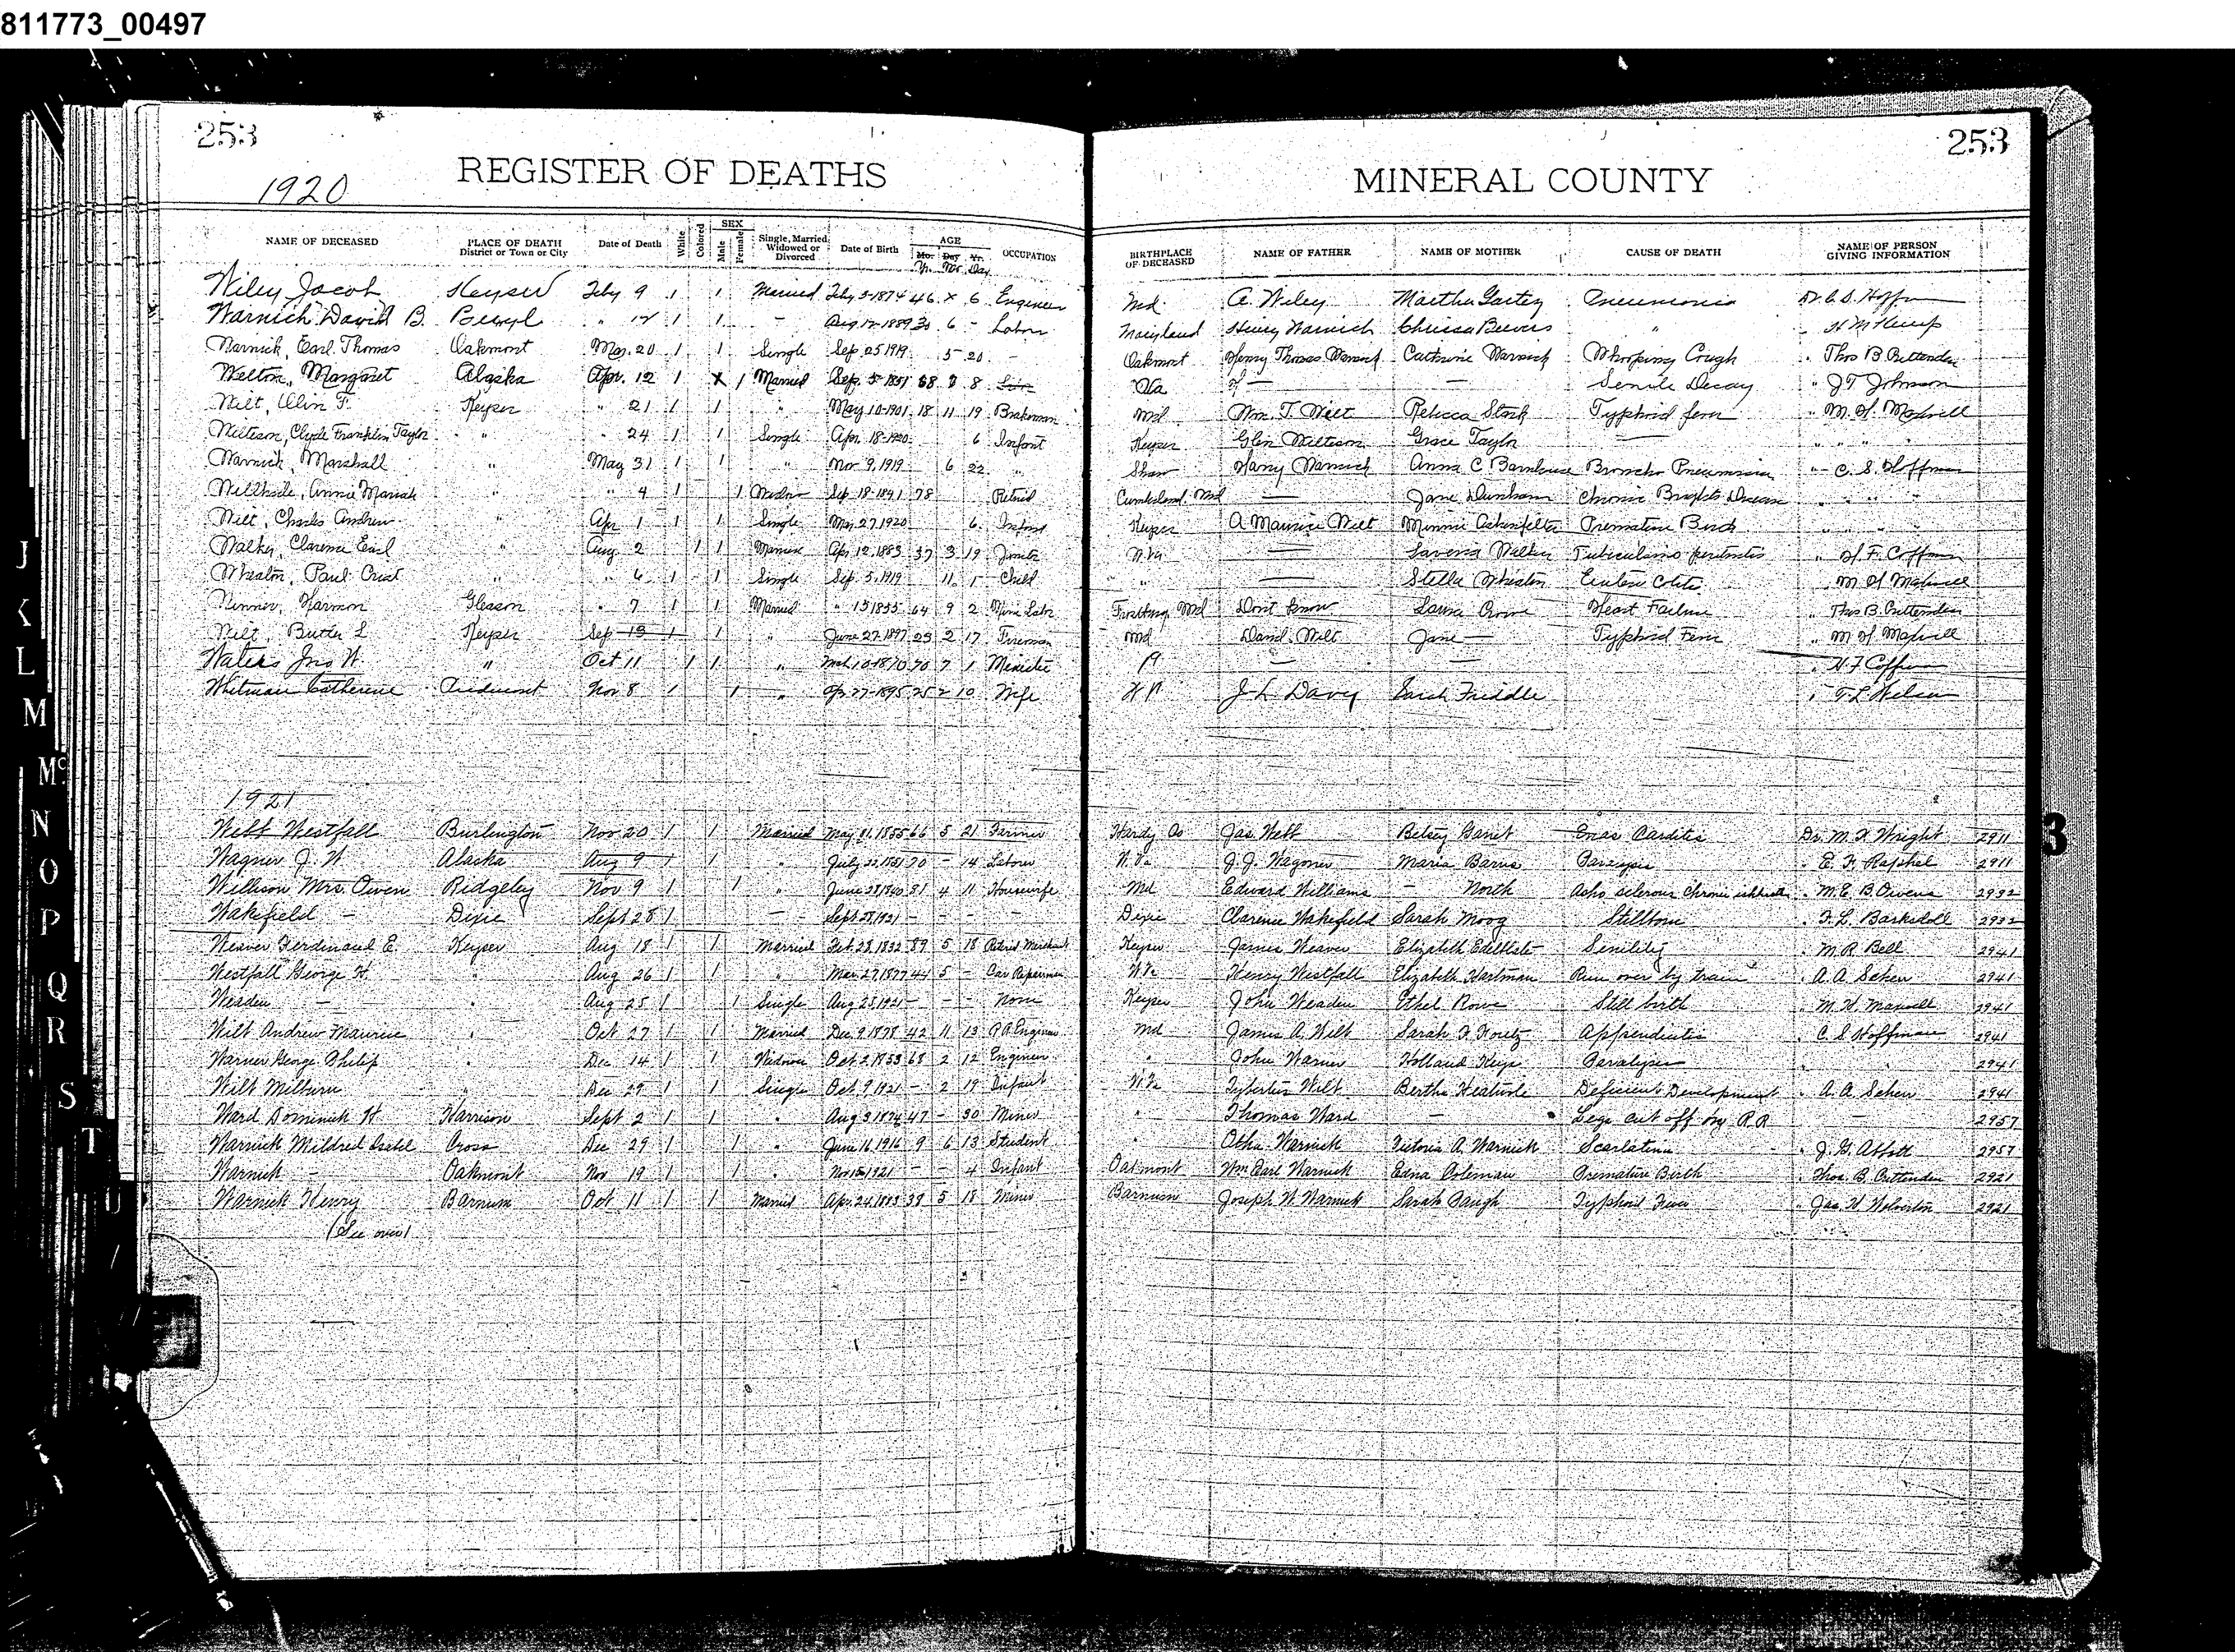 811773_00497
253
253
REGISTER OF DEATHS
MINERAL COUNTY
1920
NAME OF DECEASED PLACE OF DEATH District or Town or City Date of Death White Colored SEX Male Female Single, Married Widowed or Divorced Date of Birth AGE Mo. Day Yr. Yr. Mo. Day OCCUPATION BIRTHPLACE OF DECEASED NAME OF FATHER NAME OF MOTHER CAUSE OF DEATH NAME OF PERSON GIVING INFORMATION
Wiley Jacob Keyser Feby 9 1 1 Married Feby 3-1874 46 x 6 Engineer Md. A. Wiley Martha Pneumonia Dr. C. S.
Warnick David B. Beryl " 12 1 1 - Aug 12-1889 30 6 - Labor Maryland Henry Warnick Chrissa Beevers "
Warnick, Earl Thomas Oakmont Mar. 20 1 1 Single Sep 25 1919 5 20 - Oakmont Henry Thomas Warnick Catherine Warnick Whooping Cough " Thos B Crittenden
Welton, Margaret Alaska Apr. 12 1 X 1 Married Sep. 5-1851 68 7 8 Va — — Senile Decay " J T Johnson
Wilt, Olin F. Keyser " 21 1 1 " May 10-1901 18 11 19 Brakeman Md Wm. T. Wilt Rebecca Stark Typhoid fever " M. H. Maxwell
Wiltison, Clyde Franklin Taylor " " 24 1 1 Single Apr. 18-1920 6 Infant Keyser Glen Wiltison Grace Taylor — " " "
Warnick, Marshall " May 31 1 1 " Nov 9, 1919 6 22 " Shaw Harry Warnick Anna C Barnhouse Broncho Pneumonia " C. S. Hoffman
Annie Mariah " " 4 1 1 Widow Sep 18-1841 78 Retired Cumberland, Md — Jane Dunham Chronic Brights Disease " " "
Wilt, Charles Andrew " Apr 1 1 1 Single Mar. 27 1920 6 Infant Keyser A Maurice Wilt Minnie Premature Birth " " "
Walker, Clarence Earl " Aug. 2 1 1 Married Apr 12, 1883 37 3 19 Janitor W.Va — Walker " H. F. Coffman
Wheaton, Paul " " 6 1 1 Single Sep. 5, 1919 11 1 Child " — Stella Wheaton M H Maxwell
Winner, Harmon Gleason " 7 1 1 Married " 15 1855 64 9 2 Mine Labor Frostburg, Md Dont know Crowe Heart Failure " Thos B. Crittenden
Wilt, Butler L Keyser Sep 13 1 1 " June 27-1897 23 2 17 Fireman Md David Wilt Jane — Typhoid Fever " M H Maxwell
Waters Jno W. " Oct 11 1 1 " Mch 10-1870 7 1 Minister — — " H F Coffman
Whitman Catherine Piedmont Nov 8 1 1 " Ap. 27-1895 25 2 10 Wife J. L. Davy Sarah Friddle " T L Wilson
1921
Webb Westfall Burlington Nov 20 1 1 Married May 31, 1855 66 5 21 Farmer Hardy Co Jas. Webb Betsey Carditis Dr. M. F. Wright 2911
Wagner J. W Alaska Aug 9 1 1 " July 22, 1851 70 - 14 Laborer W. Va J. J. Wagoner Maria Barns Paralysis " E. F. Raphel 2911
Willison Mrs. Owen Ridgeley Nov 9 1 1 " June 28 1840 81 4 11 Housewife Md Edward Williams — North " M. E. B. Owens 2932
Wakefield — Dixie Sept 28 1 — Sept 28, 1921 - - - Dixie Clarence Wakefield Sarah Moog Stillborn " F. L. Barksdoll 2932
Weaver Ferdinand E. Keyser Aug 18 1 1 Married Feb. 28, 1832 89 5 18 Retired Merchant Keyser James Weaver Elizabeth Senility " M R Bell 2941
Westfall George H. " Aug 26 1 1 " Mar 27, 1877 44 5 - Car Repairman W. Va Henry Westfall Elizabeth Hartman Run over by train " A. A. Scherr 2941
Weaden — " Aug 25 1 1 Single Aug 25, 1921 - - - None Keyser John Weaden Ethel Rowe Still birth " M. H. Maxwell 2941
Wilt Andrew Maurice " Oct 27 1 1 Married Dec. 9, 1878 42 11 13 R.R. Engineer Md James A. Wilt Sarah F. Houtz Appendicitis " C. S Hoffman 2941
Warner George Philip " Dec 14 1 1 Widower Oct. 2, 1853 68 2 12 Engineer " John Warner Holland Paralysis " " 2941
Wilt Milburn " Dec 29 1 1 Single Oct. 9, 1921 - 2 19 Infant W. Va Wilt Bertha Deficient Development " A. A. Scherr 2941
Ward Dominick H. Harrison Sept 2 1 1 " Aug 3, 1874 47 - 30 Miner " Thomas Ward — Legs cut off by R R — 2957
Warnick Mildred Isabel Cross Dec 29 1 1 " June 16, 1916 9 6 13 Student " Otha Warnick Victoria A. Warnick Scarlatina " J. G. Abbott 2957
Warnick — Oakmont Nov 19 1 1 " Nov 15 1921 - - 4 Infant Oakmont Wm Earl Warnick Edna Coleman Premature Birth " Thos. B. Crittenden 2921
Warnick Henry Barnum Oct 11 1 1 Married Apr. 24, 1883 38 5 18 Miner Barnum Joseph W. Warnick Sarah Paugh Typhoid Fever " Jas. H Wolverton 2921
(See over)
J
K
L
M
Mc
N
O
P
Q
R
S
T
U
3